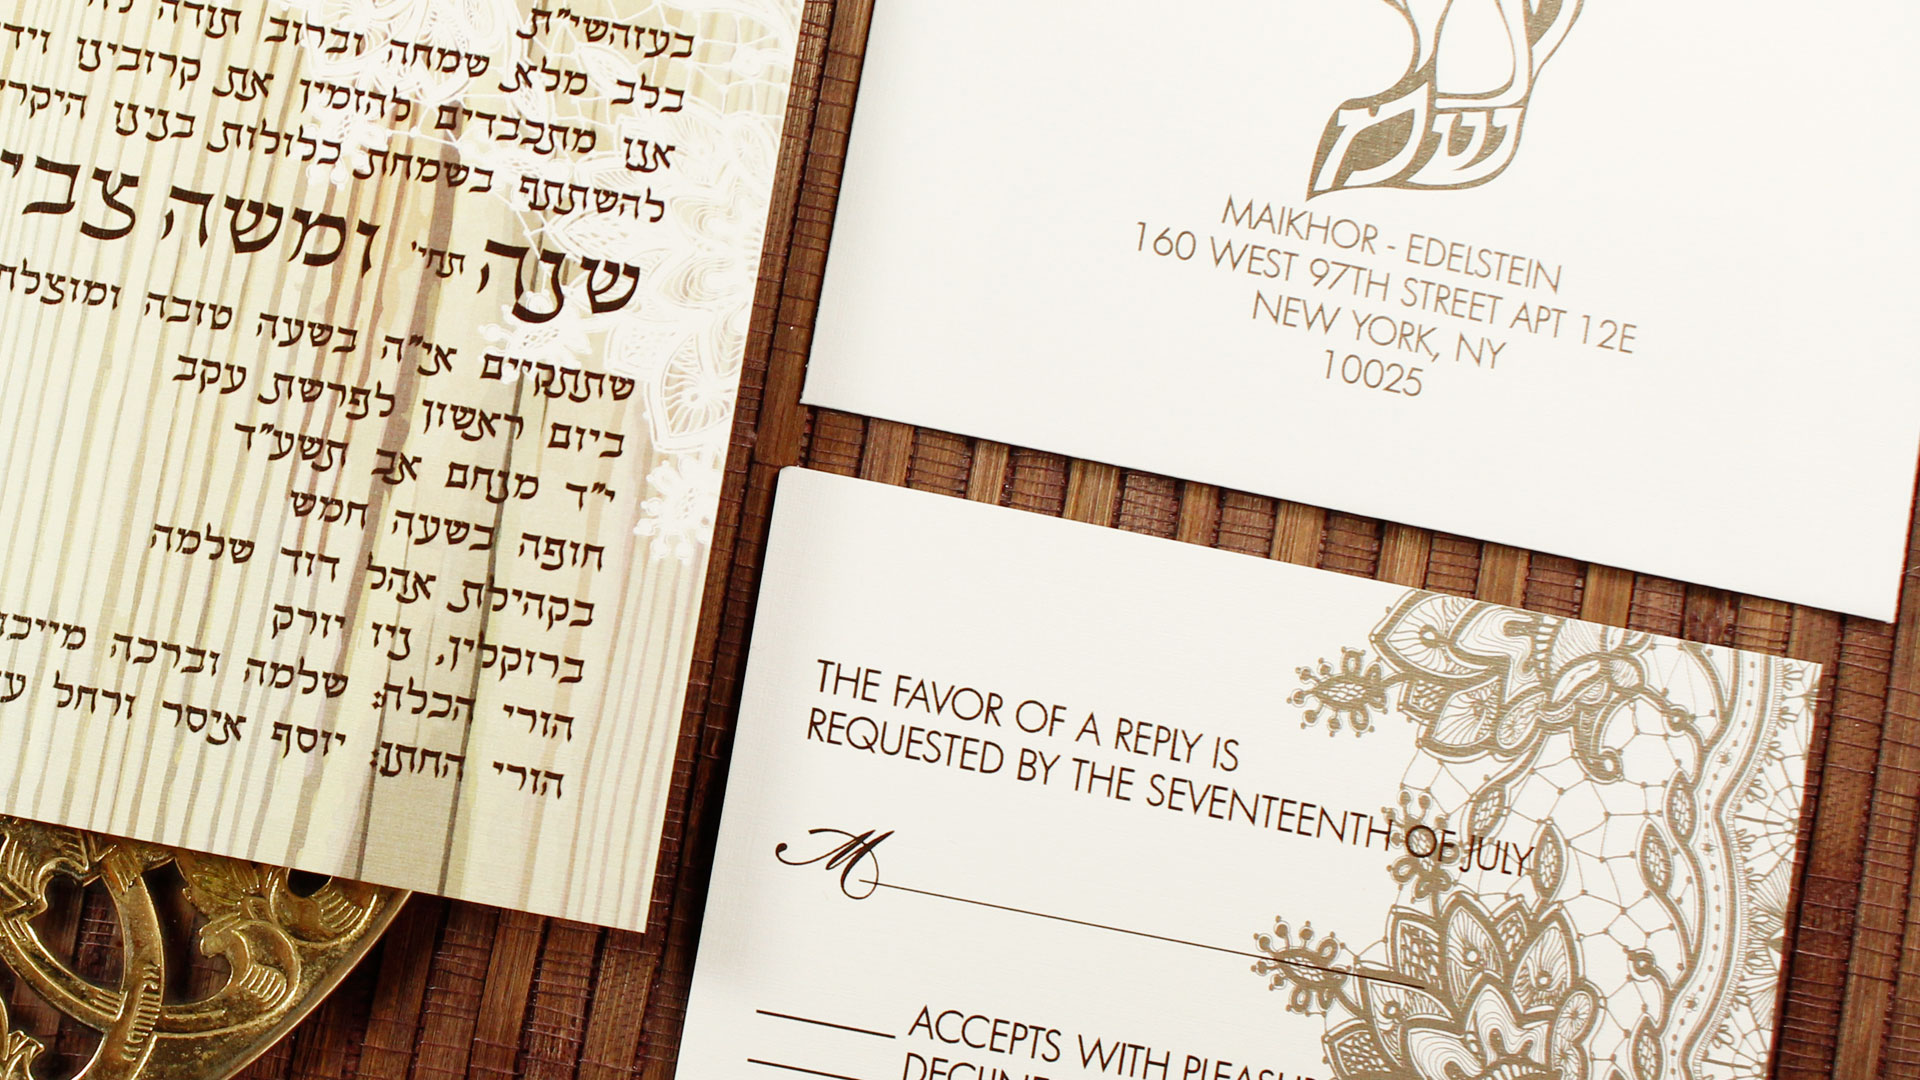 בעזהשי"ת
בלב מלא שמחה וברוב תודה
אנו מתכבדים להזמין את קרובינו
להשתתף בשמחת כלולות בנינו
שנה תחי' ומשה צבי
שתתקיים אי"ה בשעה טובה ומוצלחת
ביום ראשון לפרשת עקב
י"ד מנחם אב תשע"ד
חופה בשעה חמש
בקהילת אהל דוד שלמה
ברוקלין, ניו יורק
הורי הכלה: שלמה וברכה
הורי החתן: יוסף איסר ורחל
MAIKHOR - EDELSTEIN
160 WEST 97TH STREET APT 12E
NEW YORK, NY
10025
THE FAVOR OF A REPLY IS
REQUESTED BY THE SEVENTEENTH OF JULY
M
ACCEPTS WITH PLEASUR
DECLINE